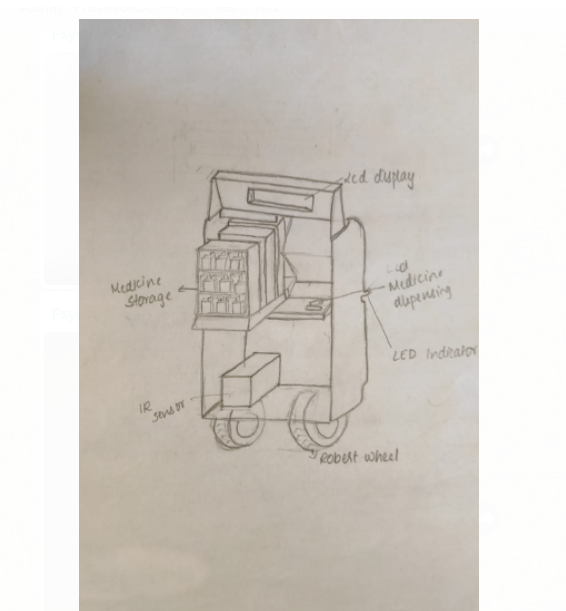 Lcd display
Medicine
storage
Medicine
dispensing
LED Indicator
IR
sensor
Robert wheel